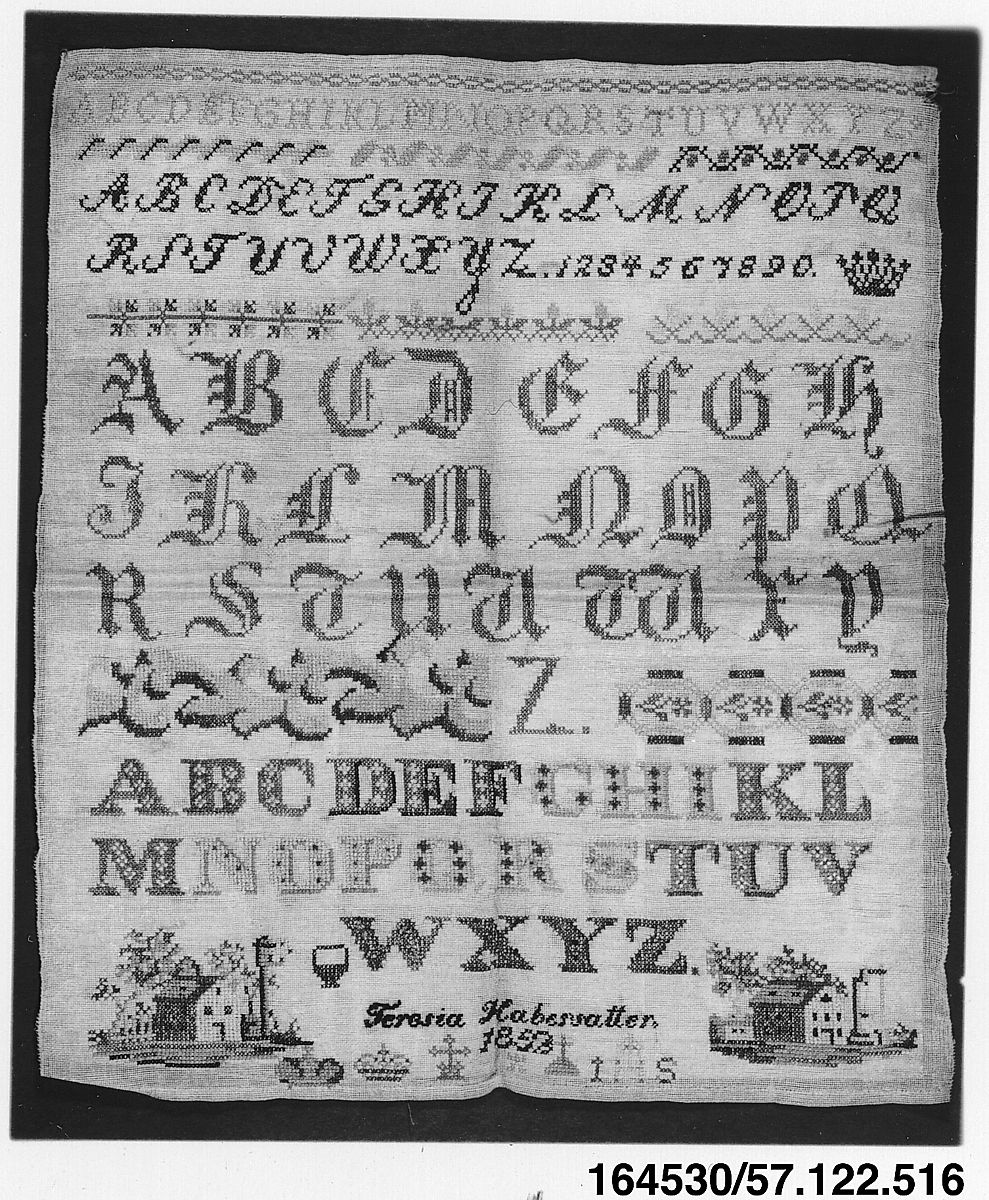 ABCDEFGHIKLMNOPQRSTUVWXYZ
ABCDEFGHIKLMNOPQ
RSTUVWXYZ.1234567890.
ABCDEFGH
IKLMNOPQ
RSTUVWXY
Z.
ABCDEFGHIKL
MNOPQRSTUV
WXYZ.
Teresia Habersatter.
1853
IHS
164530/57.122.516